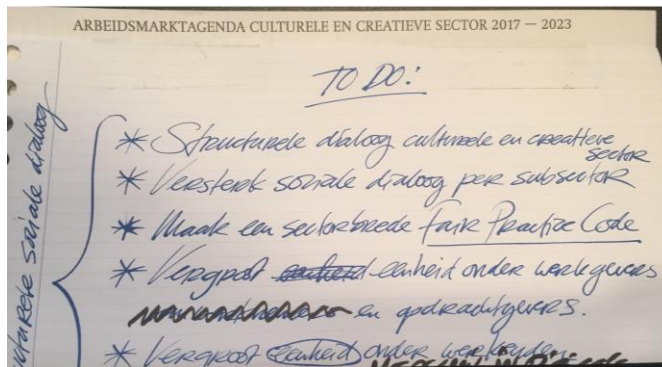 ARBEIDSMARKTAGENDA CULTURELE EN CREATIEVE SECTOR 2017 — 2023
TO DO:
* Structurele dialoog culturele en creatieve
sector
* Versterk sociale dialoog per subsector
* Maak een sectorbrede Fair Practice Code
* Vergroot eenheid onder werkgevers
en opdrachtgevers.
* Vergroot eenheid onder werkenden
sociale dialoog